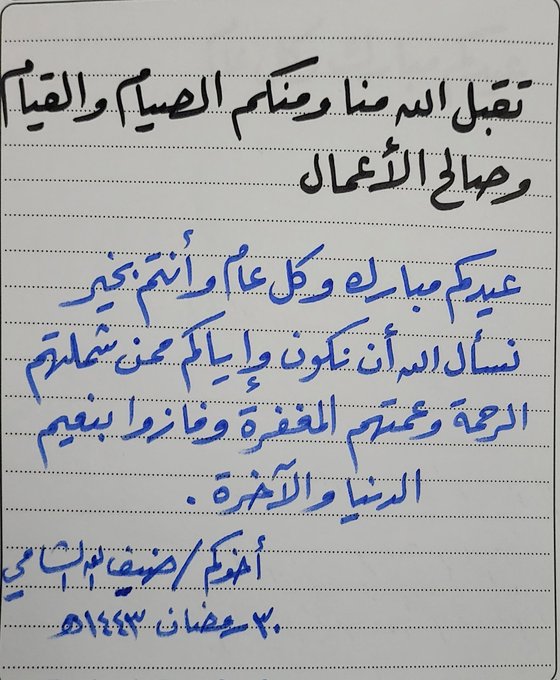 تقبل الله منا ومنكم الصيام والقيام
وصالح الأعمال
عيدكم مبارك وكل عام وأنتم بخير
نسأل الله أن نكون وإياكم ممن شملتهم
الرحمة وعمتهم المغفرة وفازوا بنعيم
الدنيا والآخرة .
أخوكم / ضيف الله الشامي
٣٠ رمضان ١٤٤٣هـ